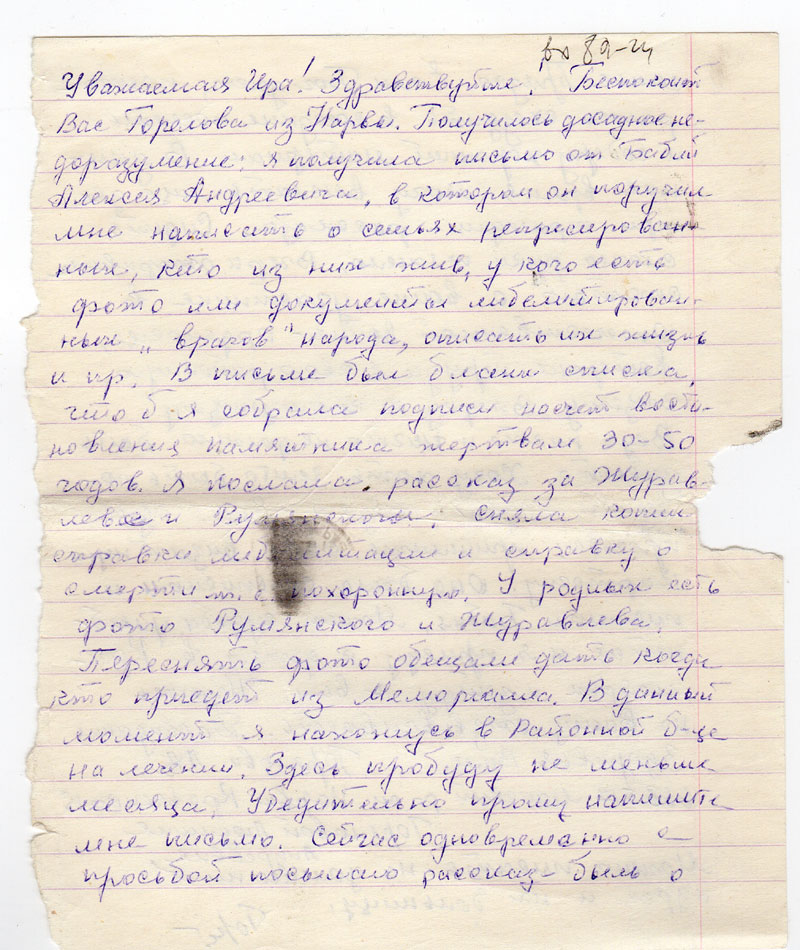 вх 89-24
Уважаемая Ира! Здравствуйте! Беспокоит
Вас Горелова из Нарвы. Получилось досадное не-
доразумение: я получила письмо от Бабий
Алексея Андреевича, в котором он поручил
мне написать о семьях репресирован-
ных, кто из них жив, у кого есть
фото или документы либелитирован-
ных „врагов" народа, описать их жизнь
и пр. В письме был бланк списка,
что б я собрала подписи насчет восста-
новления памятника жертвам 30-50
годов. Я послала рассказ за Журав-
лева и Румянского, сняла копии
справки либилитации и справку о
смерти т.е. похоронную. У родных есть
фото Румянского и Журавлева.
Переснять фото обещали дать когда
кто приедет из Мемориалла. В данный
момент я нахожусь в Районной б-це
на лечении. Здесь пробуду не меньше
месяца. Убедительно прошу напишите
мне письмо. Сейчас одновременно с
просьбой посылаю рассказ-быль о